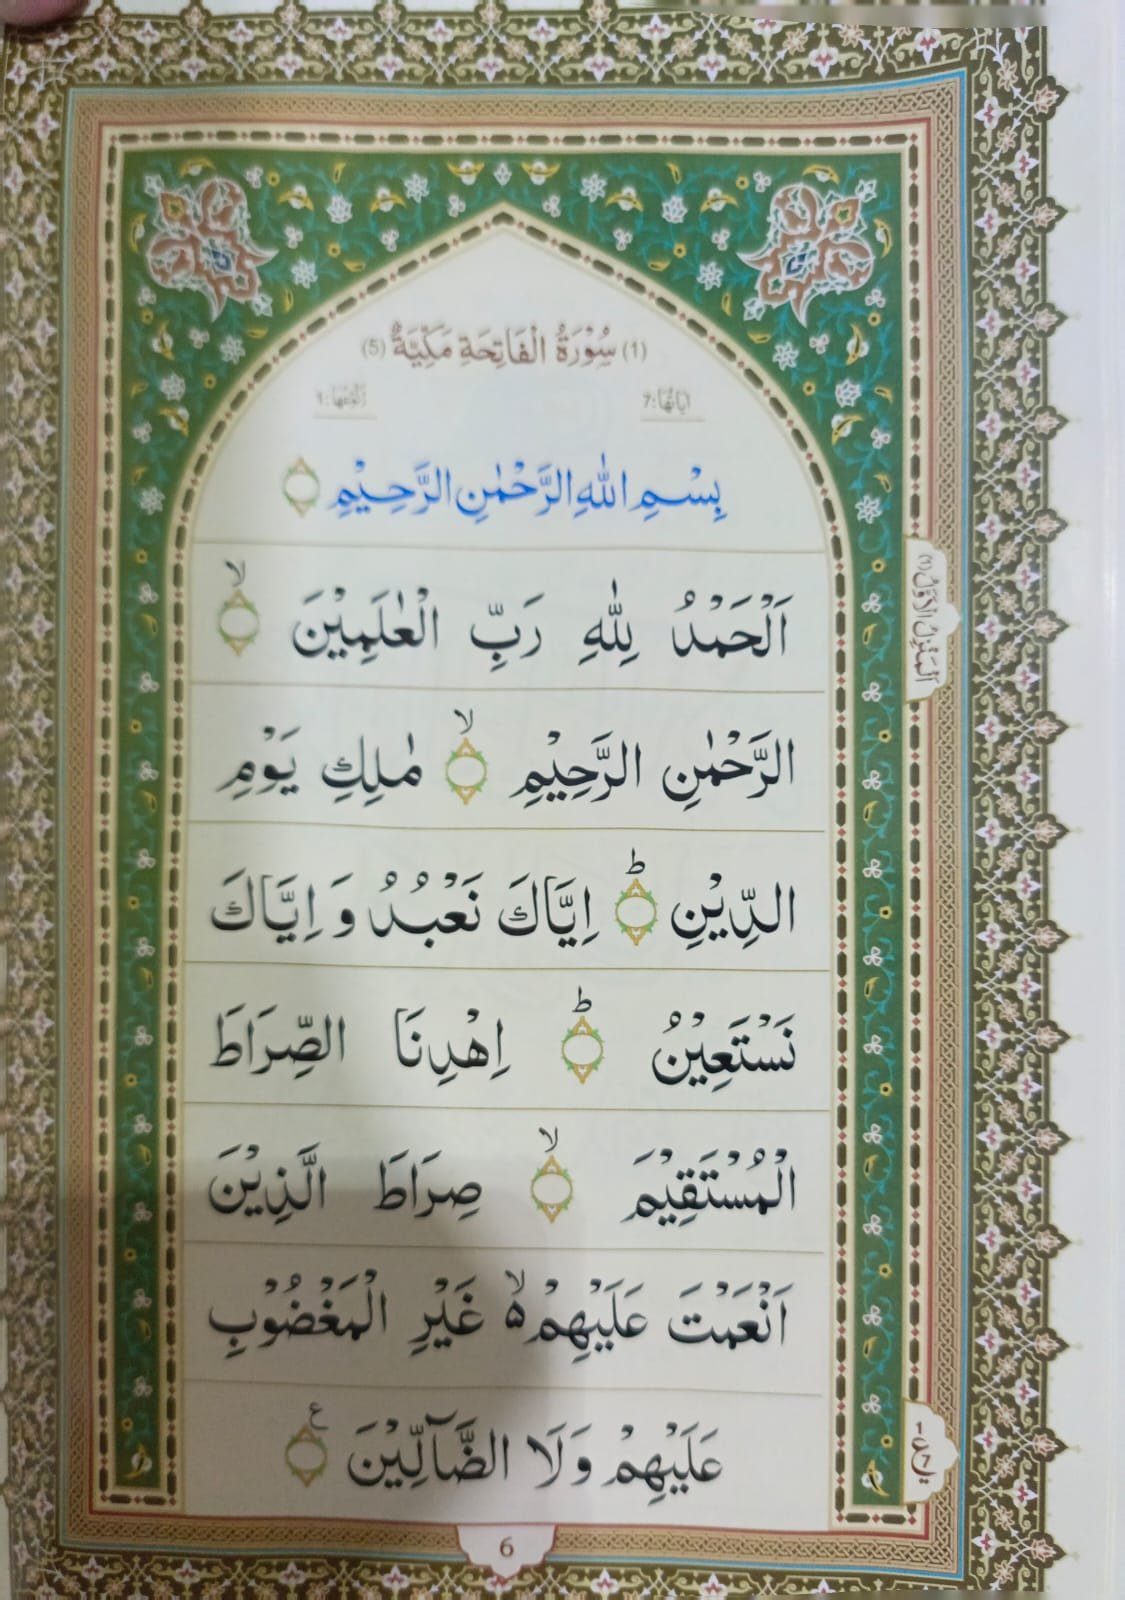 (1) سُوْرَةُ الْفَاتِحَةِ مَكِّيَّةٌ (5)
اٰيَاتُهَا: 7 رُكُوْعُهَا: 1
بِسْمِ اللّٰهِ الرَّحْمٰنِ الرَّحِيْمِ
اَلْحَمْدُ لِلّٰهِ رَبِّ الْعٰلَمِيْنَ ۙ
الرَّحْمٰنِ الرَّحِيْمِ ۙ مٰلِكِ يَوْمِ
الدِّيْنِ ؕ اِيَّاكَ نَعْبُدُ وَ اِيَّاكَ
نَسْتَعِيْنُ ؕ اِهْدِنَا الصِّرَاطَ
الْمُسْتَقِيْمَ ۙ صِرَاطَ الَّذِيْنَ
اَنْعَمْتَ عَلَيْهِمْ ۙ۵ غَيْرِ الْمَغْضُوْبِ
عَلَيْهِمْ وَلَا الضَّآلِّيْنَ ع
اَلْمَنْزِلُ الْاَوَّلُ (1)
1
ع
7
6